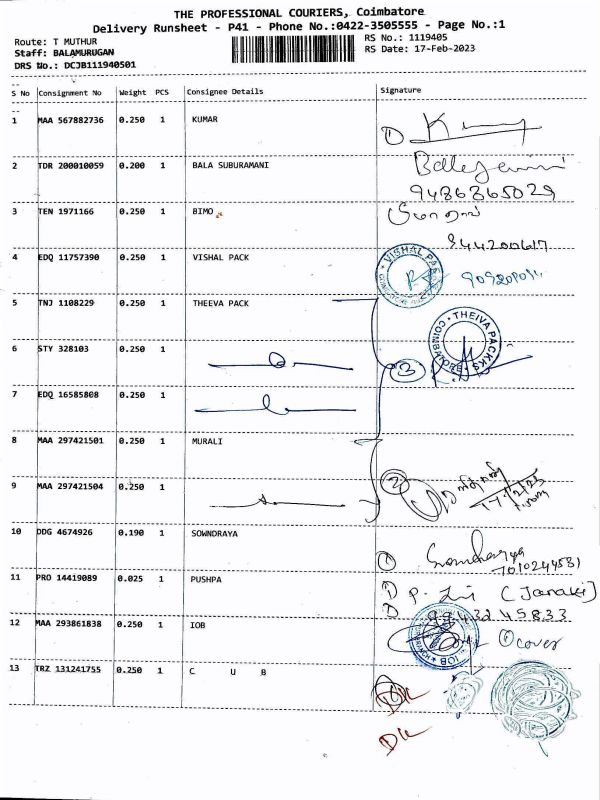 THE PROFESSIONAL COURIERS, Coimbatore
Delivery Runsheet - P41 - Phone No.:0422-3505555 - Page No.:1
Route: T MUTHUR
RS No.: 1119405
Staff: BALAMURUGAN
RS Date: 17-Feb-2023
DRS No.: DCJB111940501
S No Consignment No Weight PCS Consignee Details Signature
1 MAA 567882736 0.250 1 KUMAR
2 TDR 200010059 0.200 1 BALA SUBURAMANI
9486365029
3 TEN 1971166 0.250 1 BIMO
4 EDQ 11757390 0.250 1 VISHAL PACK
VISHAL PA
5 TNJ 1108229 0.250 1 THEEVA PACK
THEIVA PACKKS
COIMBATORE
6 STY 328103 0.250 1
3
7 EDQ 16585808 0.250 1
8 MAA 297421501 0.250 1 MURALI
2
9 MAA 297421504 0.250 1
17/2/23
10 DDG 4674926 0.190 1 SOWNDRAYA
1 Sowndharya
7010244581
11 PRO 14419089 0.025 1 PUSHPA
1 P. (Janaki)
9943245833
12 MAA 293861838 0.250 1 IOB
IOB
1 cover
13 TRZ 131241755 0.250 1 C U B
DK
DK